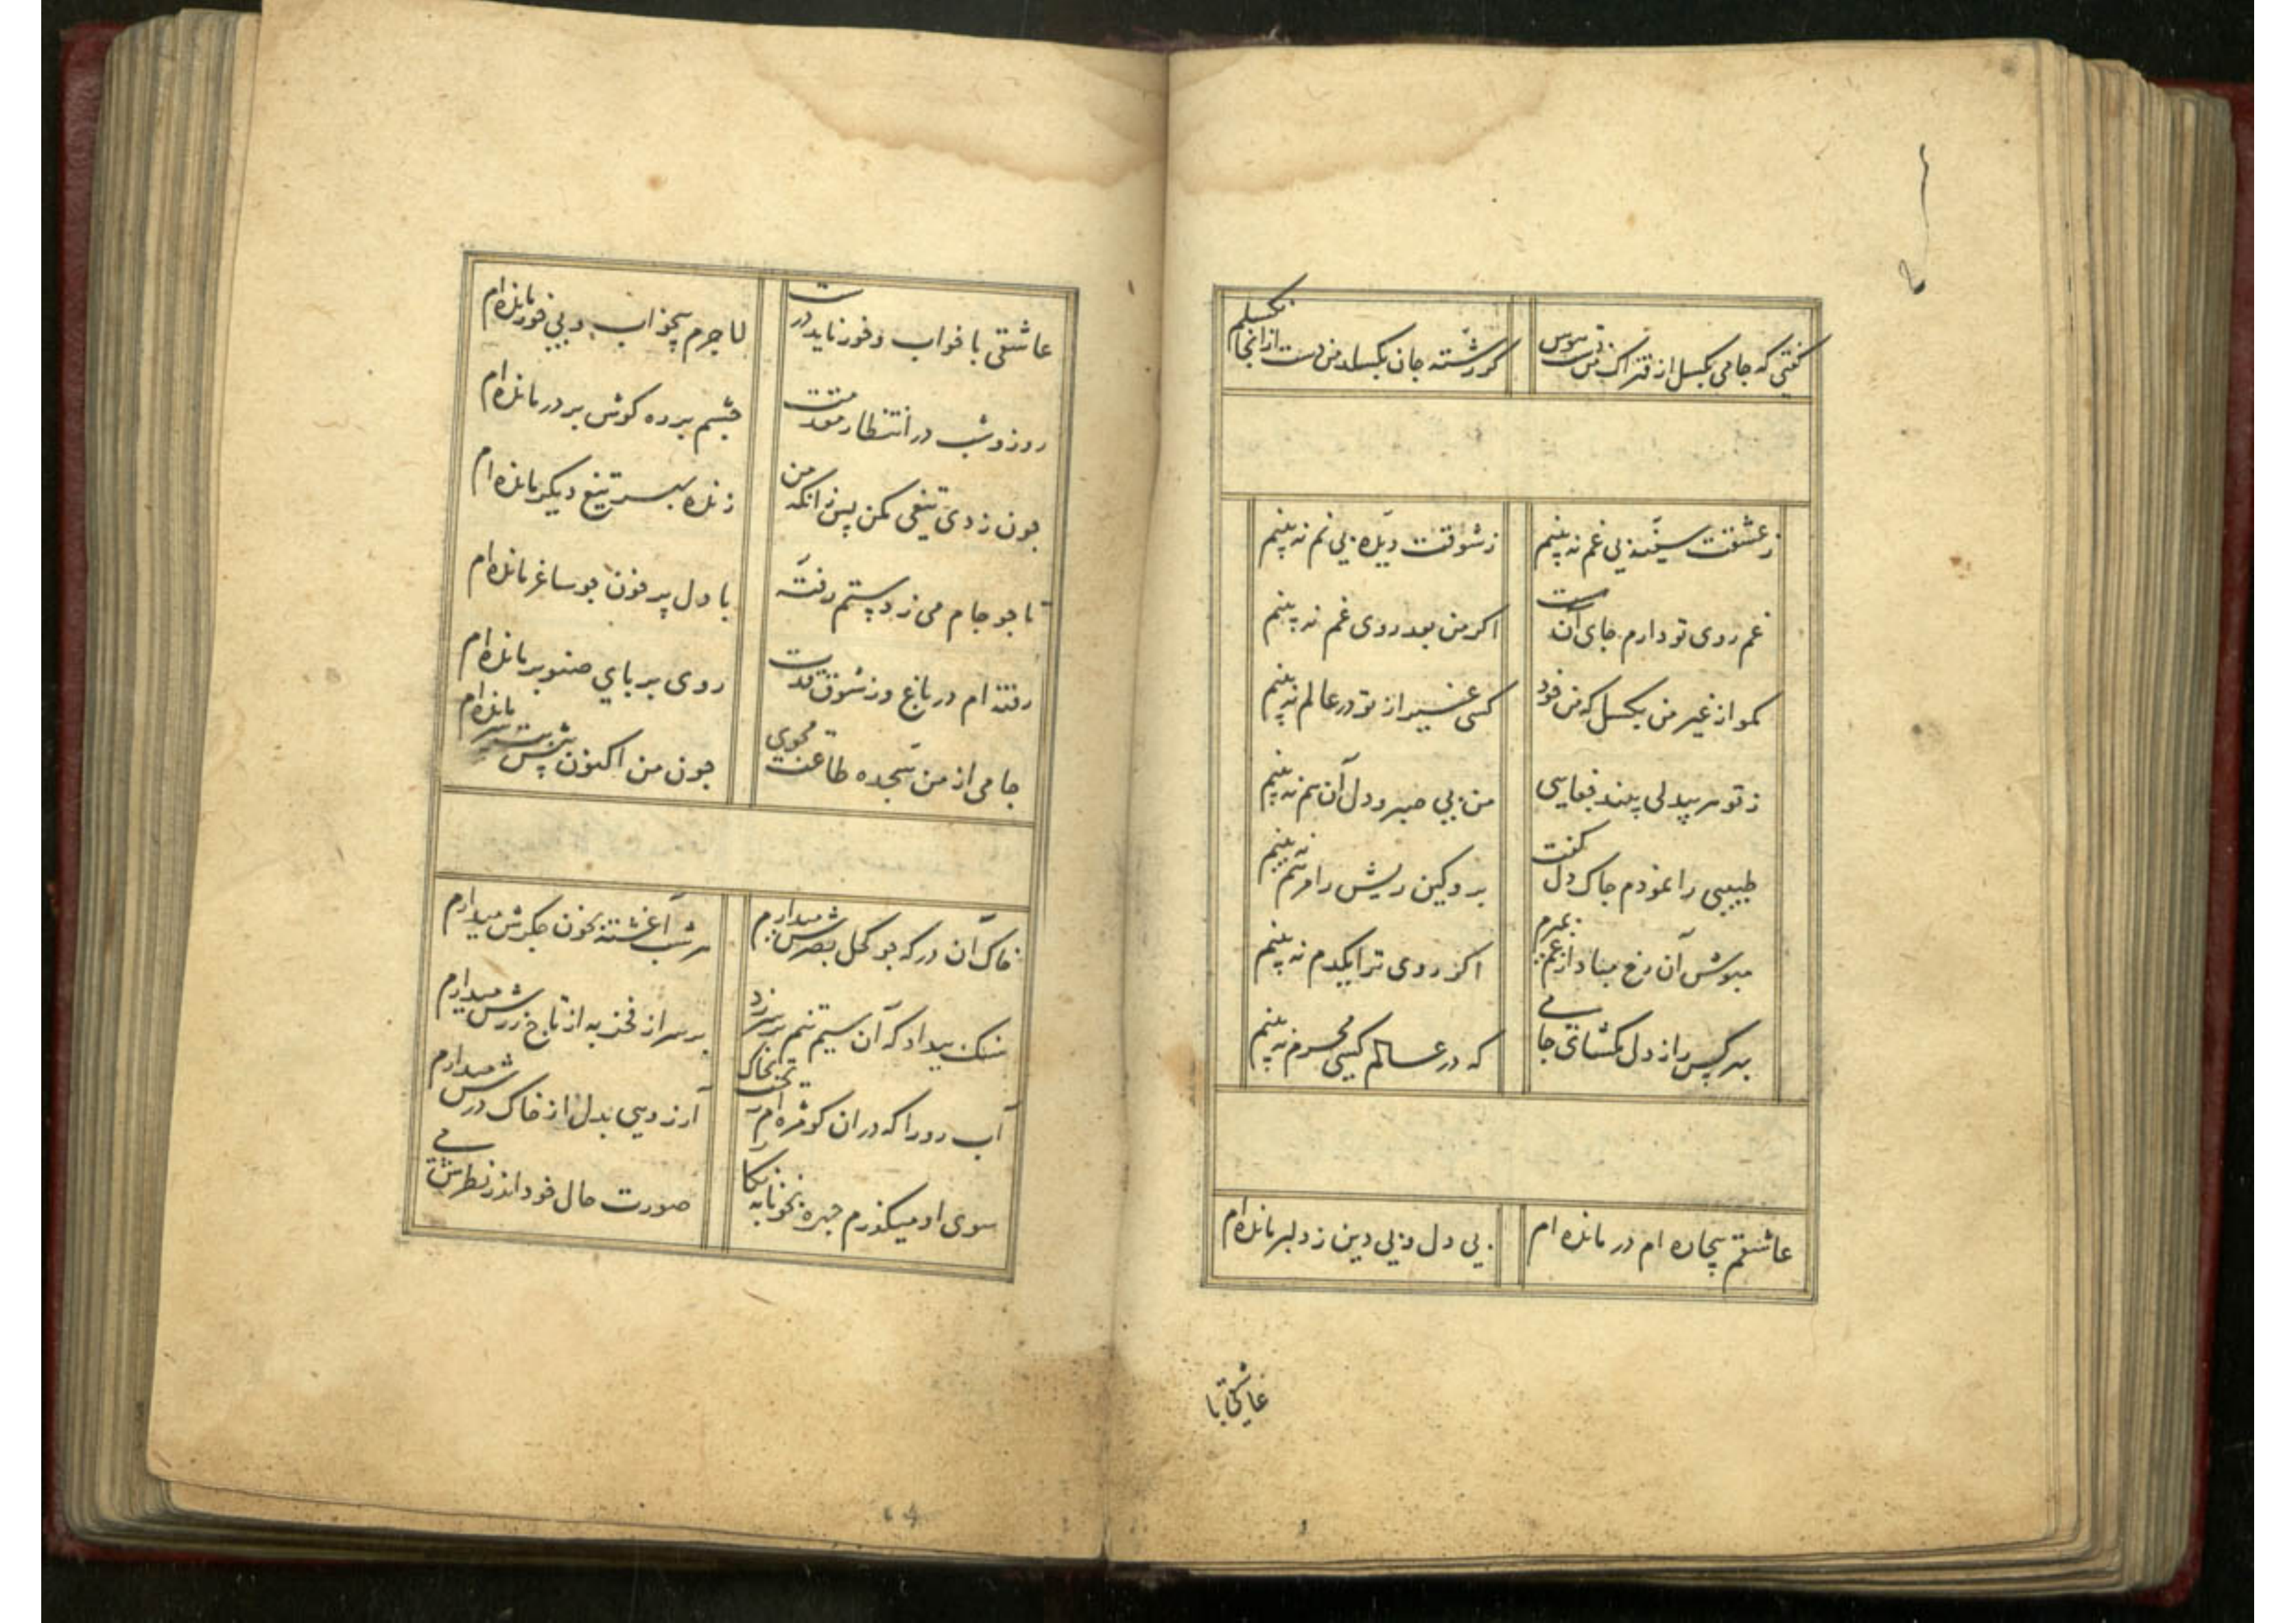 کفتی که جامی بکسل از فتراک من دست هوس
کر رشته جان بکسلد من دست ازانجا نکسلم
ز عشقت سینه بی غم نه بینم
ز شوقت دیده بی نم نه بینم
غم روی تو دارم جای آنست
اکر من بعد روی غم نه بینم
مکو از غیر من بکسل که من خود
کسی غیر از تو در عالم نه بینم
ز تو هر بیدلی بیند جفایی
من بی صبر و دل آن هم نه بینم
طبیبی را نمودم جاک دل کفت
برو کین ریش را مرهم نه بینم
مپوش آن رخ مباد از غم بمیرم
اکر روی ترا یکدم نه بینم
به هر کس راز دل مکشای جامی
که در عالم کسی محرم نه بینم
عاشقم بیچاره ام در مانده ام
بی دل و بی دین ز دلبر مانده ام
عاشقی با
عاشقی با خواب و خور ناید درست
لاجرم بیخواب و بی خور مانده ام
روز و شب در انتظار مقدمت
چشم بر ره کوش بر در مانده ام
جون زدی تیغی مکن پس زانکه من
زنده بهر تیغ دیکر مانده ام
تا جو جام می ز دستم رفته
با دل پر خون جو ساغر مانده ام
رفته ام در باغ و ز شوق قدت
روی بر پای صنوبر مانده ام
جامی از من سجده طاعت مجوی
جون من اکنون پیش بت سر مانده ام
خاک آن در که جو کحل بصرش میدارم
هر شب آغشته بخون جکرش میدارم
سنک بیداد که آن سیم تنم بر سر زد
بر سر از فخر به از تاج زرش میدارم
آب رو را که دران کو مژه ام ریخت بخاک
آرزویی بدل از خاک درش میدارم
سوی او میکذرم جهره بخونابه نکار
صورت حال خود اندر نظرش می